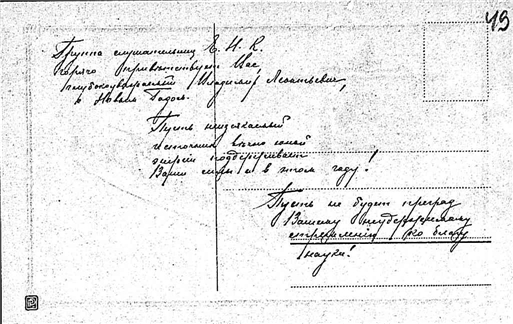 49
Группа слушательниц Е. Н. К.
горячо приветствует Вас,
глубокоуважаемый Владимир Леонтьевич,
с Новым Годом.
Пусть неиссякаемый
источник вечно юной
энергии поддерживает
Ваши силы и в этом году!
Пусть не будет преград
Вашему неудержимому
стремлению ко благу
науки!